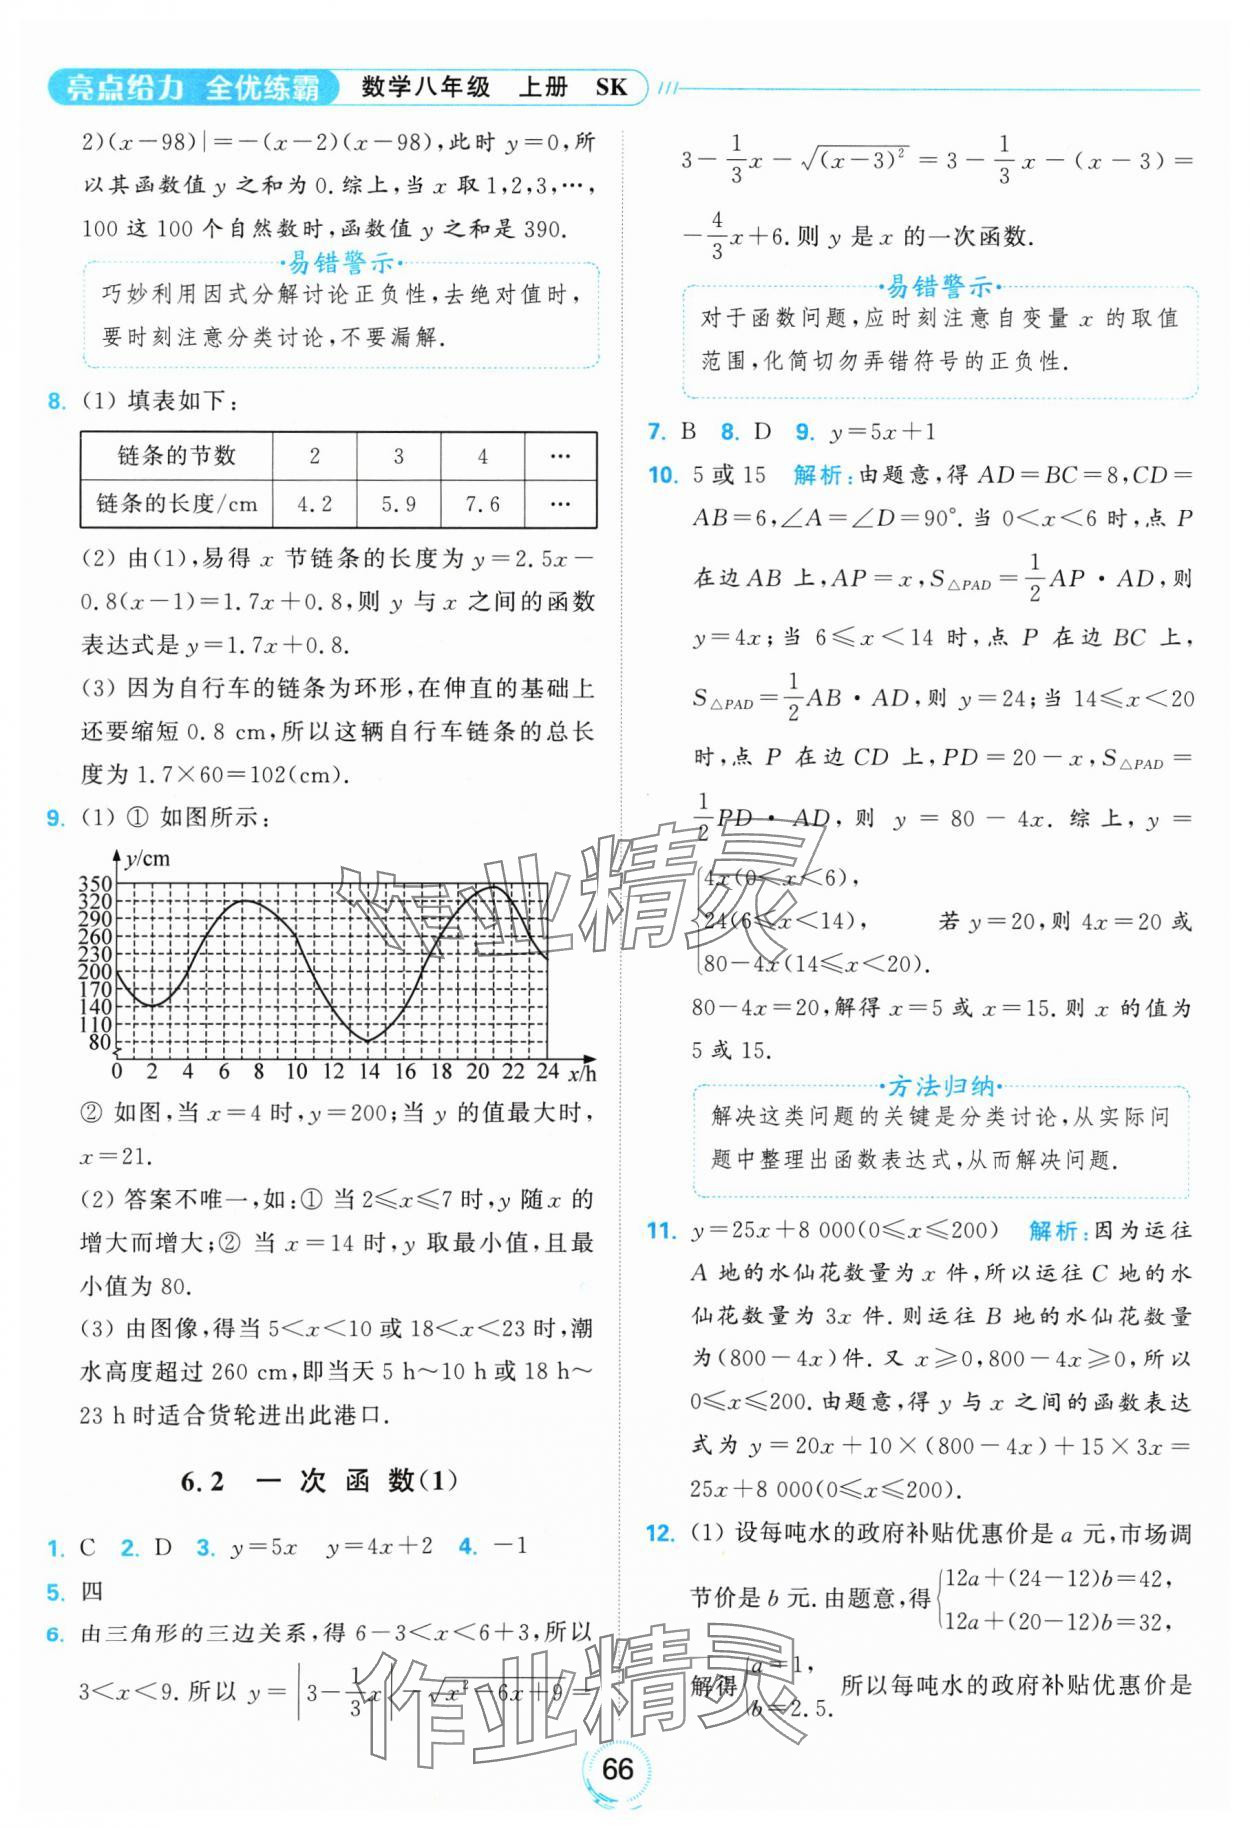 亮点给力 全优练霸 数学八年级 上册 SK
2)(x-98)|=-(x-2)(x-98),此时 y=0,所
以其函数值 y 之和为 0.综上,当 x 取 1,2,3,…,
100 这 100 个自然数时,函数值 y 之和是 390.
·易错警示·
巧妙利用因式分解讨论正负性,去绝对值时,
要时刻注意分类讨论,不要漏解.
8. (1) 填表如下:
链条的节数 2 3 4 …
链条的长度/cm 4.2 5.9 7.6 …
(2) 由(1),易得 x 节链条的长度为 y=2.5x-
0.8(x-1)=1.7x+0.8,则 y 与 x 之间的函数
表达式是 y=1.7x+0.8.
(3) 因为自行车的链条为环形,在伸直的基础上
还要缩短 0.8 cm,所以这辆自行车链条的总长
度为 1.7×60=102(cm).
9. (1) ① 如图所示:
y/cm
350
320
290
260
230
200
170
140
110
80
0 2 4 6 8 10 12 14 16 18 20 22 24 x/h
② 如图,当 x=4 时,y=200;当 y 的值最大时,
x=21.
(2) 答案不唯一,如:① 当 2≤x≤7 时,y 随 x 的
增大而增大;② 当 x=14 时,y 取最小值,且最
小值为 80.
(3) 由图像,得当 5<x<10 或 18<x<23 时,潮
水高度超过 260 cm,即当天 5 h~10 h 或 18 h~
23 h 时适合货轮进出此港口.
6.2 一次函数(1)
1. C 2. D 3. y=5x y=4x+2 4. -1
5. 四
6. 由三角形的三边关系,得 6-3<x<6+3,所以
3<x<9.所以 y=|3-1/3x|-√(x²-6x+9)=
3-1/3x-√((x-3)²)=3-1/3x-(x-3)=
-4/3x+6.则 y 是 x 的一次函数.
·易错警示·
对于函数问题,应时刻注意自变量 x 的取值
范围,化简切勿弄错符号的正负性.
7. B 8. D 9. y=5x+1
10. 5 或 15 解析:由题意,得 AD=BC=8,CD=
AB=6,∠A=∠D=90°.当 0<x<6 时,点 P
在边 AB 上,AP=x,S△PAD=1/2AP·AD,则
y=4x;当 6≤x<14 时,点 P 在边 BC 上,
S△PAD=1/2AB·AD,则 y=24;当 14≤x<20
时,点 P 在边 CD 上,PD=20-x,S△PAD=
1/2PD·AD,则 y=80-4x.综上,y=
{4x(0<x<6),
24(6≤x<14), 若 y=20,则 4x=20 或
80-4x(14≤x<20).
80-4x=20,解得 x=5 或 x=15.则 x 的值为
5 或 15.
·方法归纳·
解决这类问题的关键是分类讨论,从实际问
题中整理出函数表达式,从而解决问题.
11. y=25x+8 000(0≤x≤200) 解析:因为运往
A 地的水仙花数量为 x 件,所以运往 C 地的水
仙花数量为 3x 件.则运往 B 地的水仙花数量
为(800-4x)件.又 x≥0,800-4x≥0,所以
0≤x≤200.由题意,得 y 与 x 之间的函数表达
式为 y=20x+10×(800-4x)+15×3x=
25x+8 000(0≤x≤200).
12. (1) 设每吨水的政府补贴优惠价是 a 元,市场调
节价是 b 元.由题意,得{12a+(24-12)b=42,
12a+(20-12)b=32,
解得{a=1,
b=2.5. 所以每吨水的政府补贴优惠价是
66
作业精灵
作业精灵